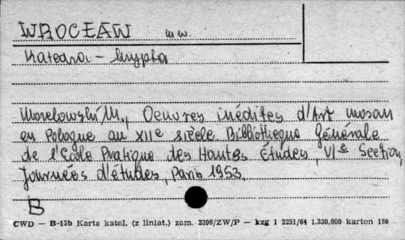 WROCŁAW m.w.
Katedra - krypta
Morelowski M., Oeuvres inédites d'Art mosan
en Pologne au XIIe siècle Bibliothèque Générale
de l'Ecole Pratique des Hautes Études, VIe Section,
Journées d'études, Paris 1953.
B
CWD — B-15b Karta katal. (z liniat.) zam. 2396/ZW/P — kzg 1 2251/64 1.330.000 karton 180